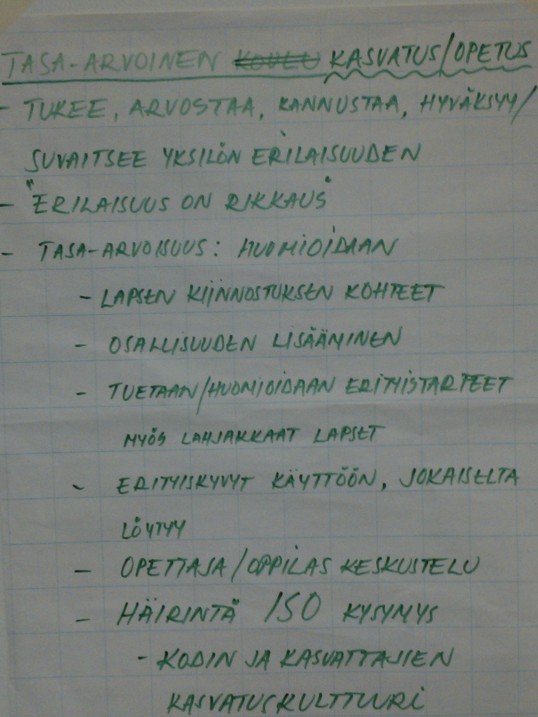 TASA-ARVOINEN KOULU KASVATUS/OPETUS
- TUKEE, ARVOSTAA, KANNUSTAA, HYVÄKSYY/
SUVAITSEE YKSILÖN ERILAISUUDEN
- "ERILAISUUS ON RIKKAUS"
- TASA-ARVOISUUS: HUOMIOIDAAN
- LAPSEN KIINNOSTUKSEN KOHTEET
- OSALLISUUDEN LISÄÄMINEN
- TUETAAN/HUOMIOIDAAN ERITYISTARPEET
MYÖS LAHJAKKAAT LAPSET
- ERITYISKYVYT KÄYTTÖÖN, JOKAISELTA
LÖYTYY
- OPETTAJA/OPPILAS KESKUSTELU
- HÄIRINTÄ ISO KYSYMYS
- KODIN JA KASVATTAJIEN
KASVATUSKULTTUURI